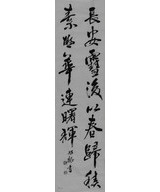 長安雪後似春歸積
素凝華連曙輝